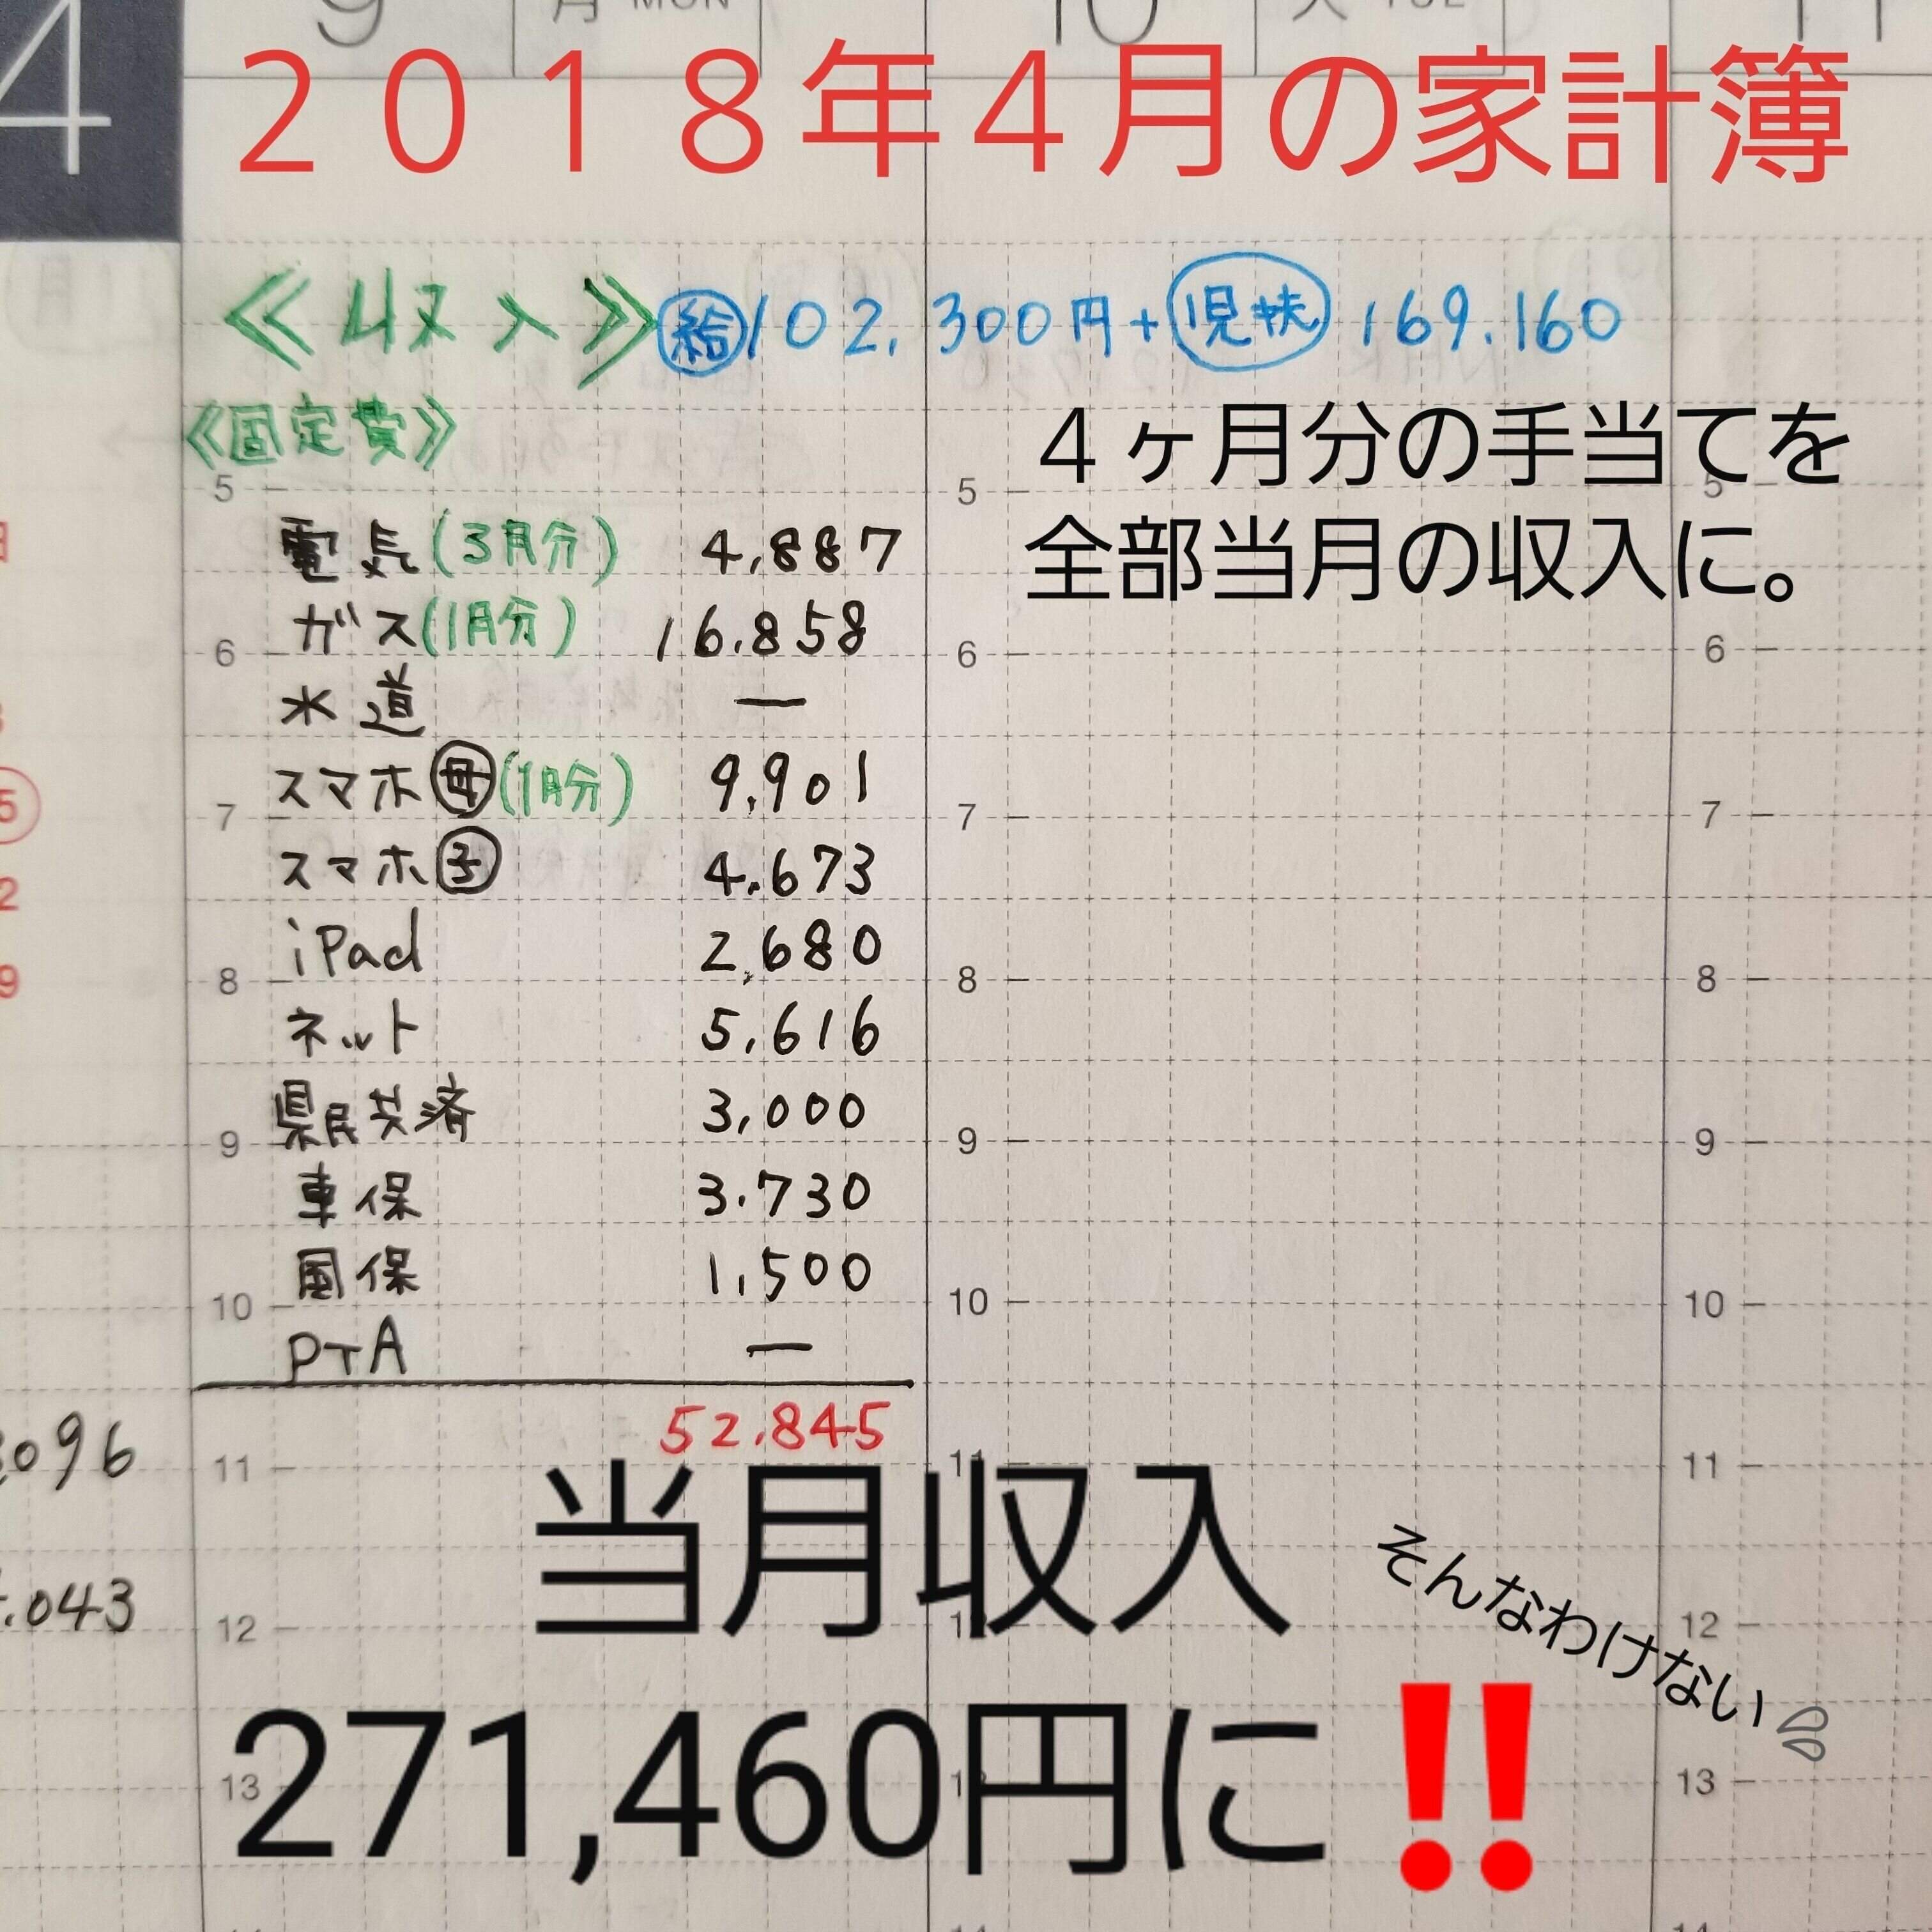 4
9 月 MON
10 火 TUE
11
2018年4月の家計簿
≪収入≫ 給 102.300円+児扶 169.160
≪固定費≫
4ヶ月分の手当てを
全部当月の収入に。
5 5 5
電気(3月分) 4,887
ガス(1月分) 16.858
6 6 6
水道 ―
スマホ母(1月分) 9,901
7 7 7
スマホ子 4.673
iPad 2,680
8 8 8
ネット 5,616
県民共済 3,000
9 9 9
車保 3.730
国保 1,500
10 10 10
PTA ―
52.845
096
11 11 11
当月収入
そんなわけない
.043
12 12 12
271,460円に‼
13 13 13